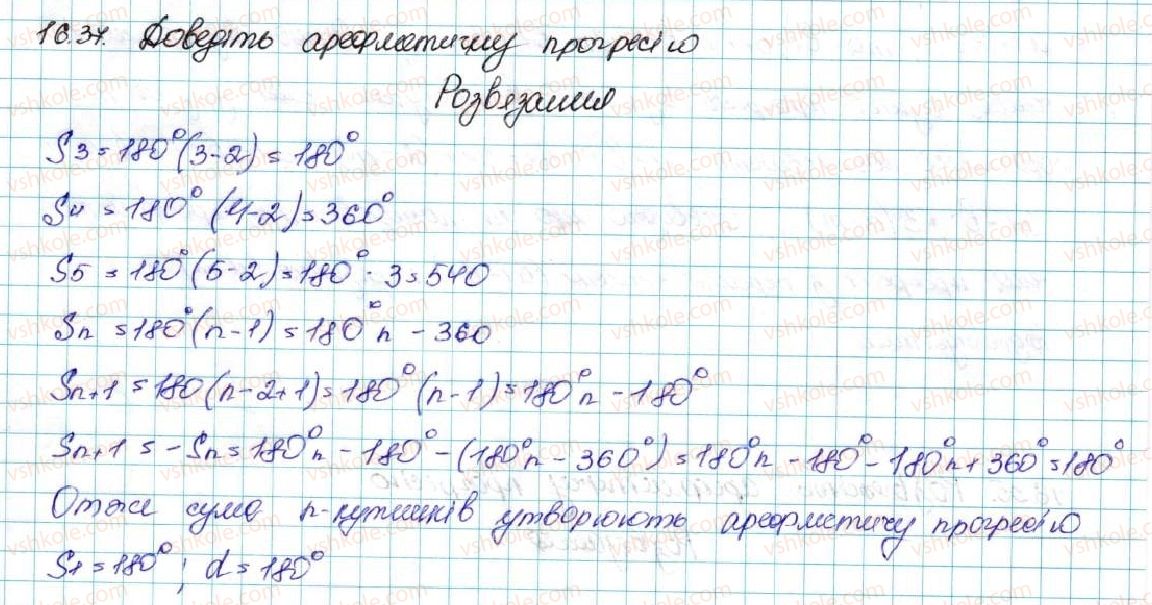 16.37. Доведіть арефметичну прогресію
Розвязання
S3 = 180°(3-2) = 180°
S4 = 180° (4-2) = 360°
S5 = 180°(5-2) = 180° · 3 = 540
Sn = 180°(n-1) = 180°n - 360
Sn+1 = 180(n-2+1) = 180°(n-1) = 180°n - 180°
Sn+1 = -Sn = 180°n - 180° - (180°n - 360°) = 180°n - 180° - 180°n + 360° = 180°
Отже сума n-кутників утворюють арефметичу прогресію
S1 = 180° ; d = 180°